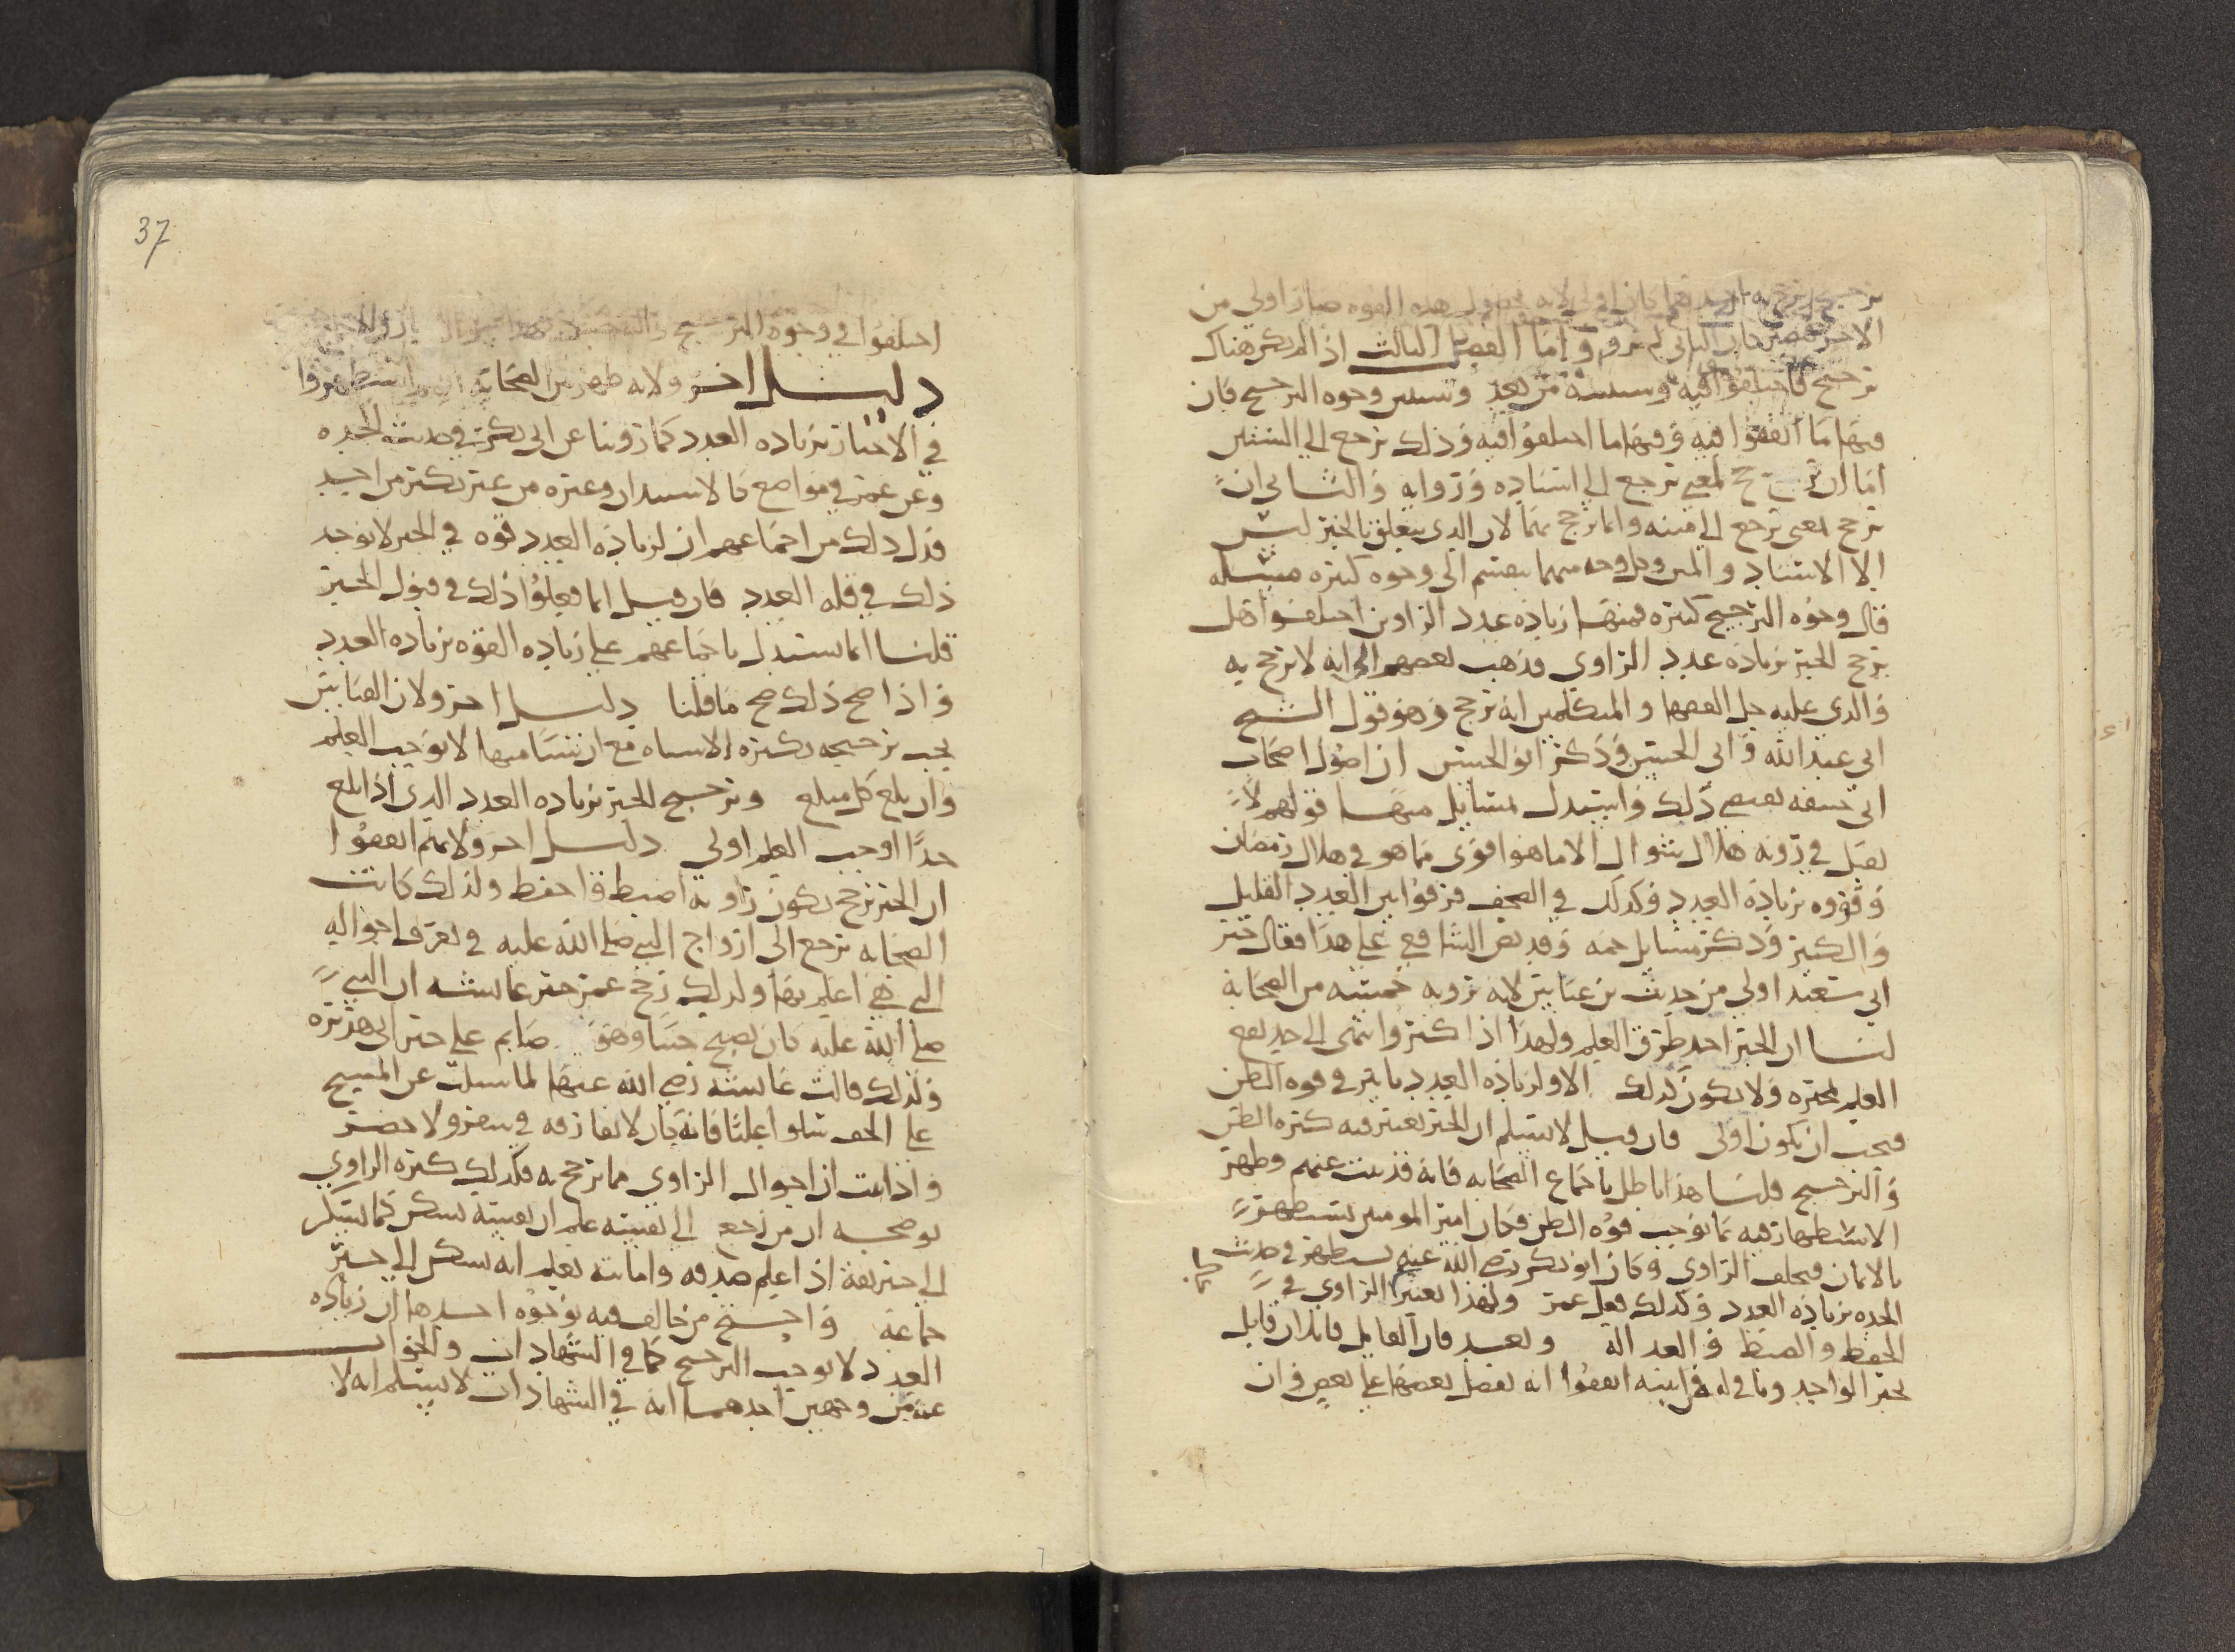 ترجيح يرجح به احدهما كان اولى لانه بحصول هذه القوه صار اولى من
الاخر فصار كان الثانى لم يرو واما الفصل الثالث اذا لم يكن هناك
ترجيح فاختلفوا فيه وسنبينه من بعد ونبين وجوه الترجيح فان
فيها ما اتفقوا فيه وفيها ما اختلفوا فيه وذلك يرجع الى الشيئين
اما ان يرجح بمعنى يرجع الى اسناده ورواته والثانى ان
يرجح بمعنى يرجع الى متنه وانما يرجح بهما لان الذى يتعلق بالخبر ليس
الا الاسناد والمتن وكل وجه منهما ينقسم الى وجوه كثيره مسئله
قال وجوه الترجيح كثيره فمنها زياده عدد الراوين اختلفوا هل
يرجح الخبر بزياده عدد الراوى فذهب بعضهم الى انه لا يرجح به
والذى عليه جل الفقها والمتكلمين انه يرجح وهو قول الشيخ
ابى عبد الله وابى الحسين وذكر ابو الحسين ان اصول اصحاب
ابى حنيفه يقتضى ذلك واستدل بمسايل منها قولهم لا
يقبل فى رؤيه هلال شوال الا ما هو اقوى مما هو فى هلال رمضان
وقووه بزياده العدد وكذلك فى الصحف فرقوا بين العدد القليل
والكثير وذكر مسايل جمه وقد نص الشافعى على هذا فقال خبر
ابى سعيد اولى من حديث بن عباس لانه ترويه خمسه من الصحابه
لنا ان الخبر احد طرق العلم ولهذا اذا كثروا انتهى الى حد يقع
العلم بخبره ولا يكون كذلك الا ولزياده العدد تاثير فى قوه الظن
فيجب ان يكون اولى فان قيل لا نسلم ان الخبر يعتبر فيه كثره الظن
والترجيح قلنا هذا باطل باجماع الصحابه فانه قد ثبت عنهم وظهر
الاستظهار فيه بما يوجب قوه الظن فكان امير المومنين يستظهر
بالايمان فيحلف الراوى وكان ابو بكر رضى الله عنه يستظهر فى حديث
الجده بزياده العدد وكذلك فعل عمر ولهذا يعتبر الراوى فى
الحفظ والضبط والعداله وبعد فان القايل قايلان قايل
بخبر الواحد وناف له فمن اثبته اتفقوا انه يفضل بعضها على بعض وان
37
اختلفوا فى وجوه الترجيح
دليل اخر ولانه ظهر من الصحابه انهم استظهروا
فى الاخبار بزياده العدد كما روينا عن ابى بكر فى حديث الجده
وعن عمر فى مواضع كالاستيذان وغيره من غير نكير من احد
فدل ذلك من اجماعهم ان لزياده العدد قوه فى الخبر لا يوجد
ذلك فى قله العدد فان قيل انما فعلوا ذلك فى قبول الخبر
قلنا انما نستدل باجماعهم على زياده القوه بزياده العدد
واذا صح ذلك صح ما قلنا دليل اخر ولان القياس
يجب ترجيحه بكثره الاشباه مع ان تساميها لا يوجب العلم
وان بلغ كل مبلغ وترجيح الخبر بزياده العدد الذى اذا بلغ
حدا اوجب العلم اولى دليل اخر ولانهم اتفقوا
ان الخبر يرجح بكون راويه اضبط واحفظ ولذلك كانت
الصحابه ترجع الى ازواج النبى صلى الله عليه فى تعرف احواله
التى هى اعلم بها ولذلك رجح عمر خبر عائشه ان النبى
صلى الله عليه كان يصبح جنبا وهو صايم على خبر ابى هريره
ولذلك قالت عائشه رضى الله عنها لما سيلت عن المسح
على الخف سلوا عليا فانه كان لا يفارقه فى سفر ولا حضر
واذا ثبت ان احوال الراوى مما يرجح به فكذلك كثره الراوى
يوضحه ان من راجع الى نفسه علم ان نفسه تسكن كما تسكن
الى خبر ثقه اذا علم صدقه وامانته يعلم انه تسكن الى خبر
جماعه واحتج من خالف فيه بوجوه احدها ان زياده
العدد لا يوجب الترجيح كما فى الشهادات والجواب
عنه من وجهين احدهما انه فى الشهادات لا نسلم انه لا